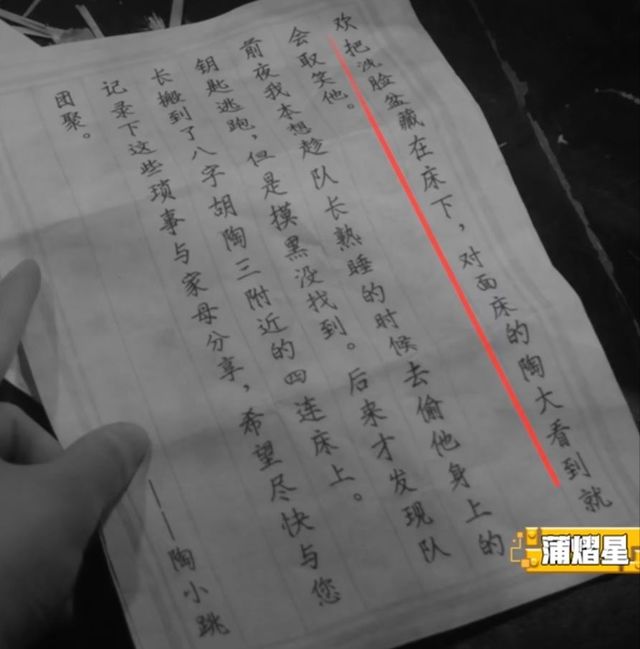 欢把洗脸盆藏在床下，对面床的陶大看到就
会取笑他。
前夜我本想趁队长熟睡的时候去偷他身上的
钥匙逃跑，但是摸黑没找到。后来才发现队
长搬到了八字胡陶三附近的四连床上。
记录下这些琐事与家母分享，希望尽快与您
团聚。
——陶小跳
蒲熠星